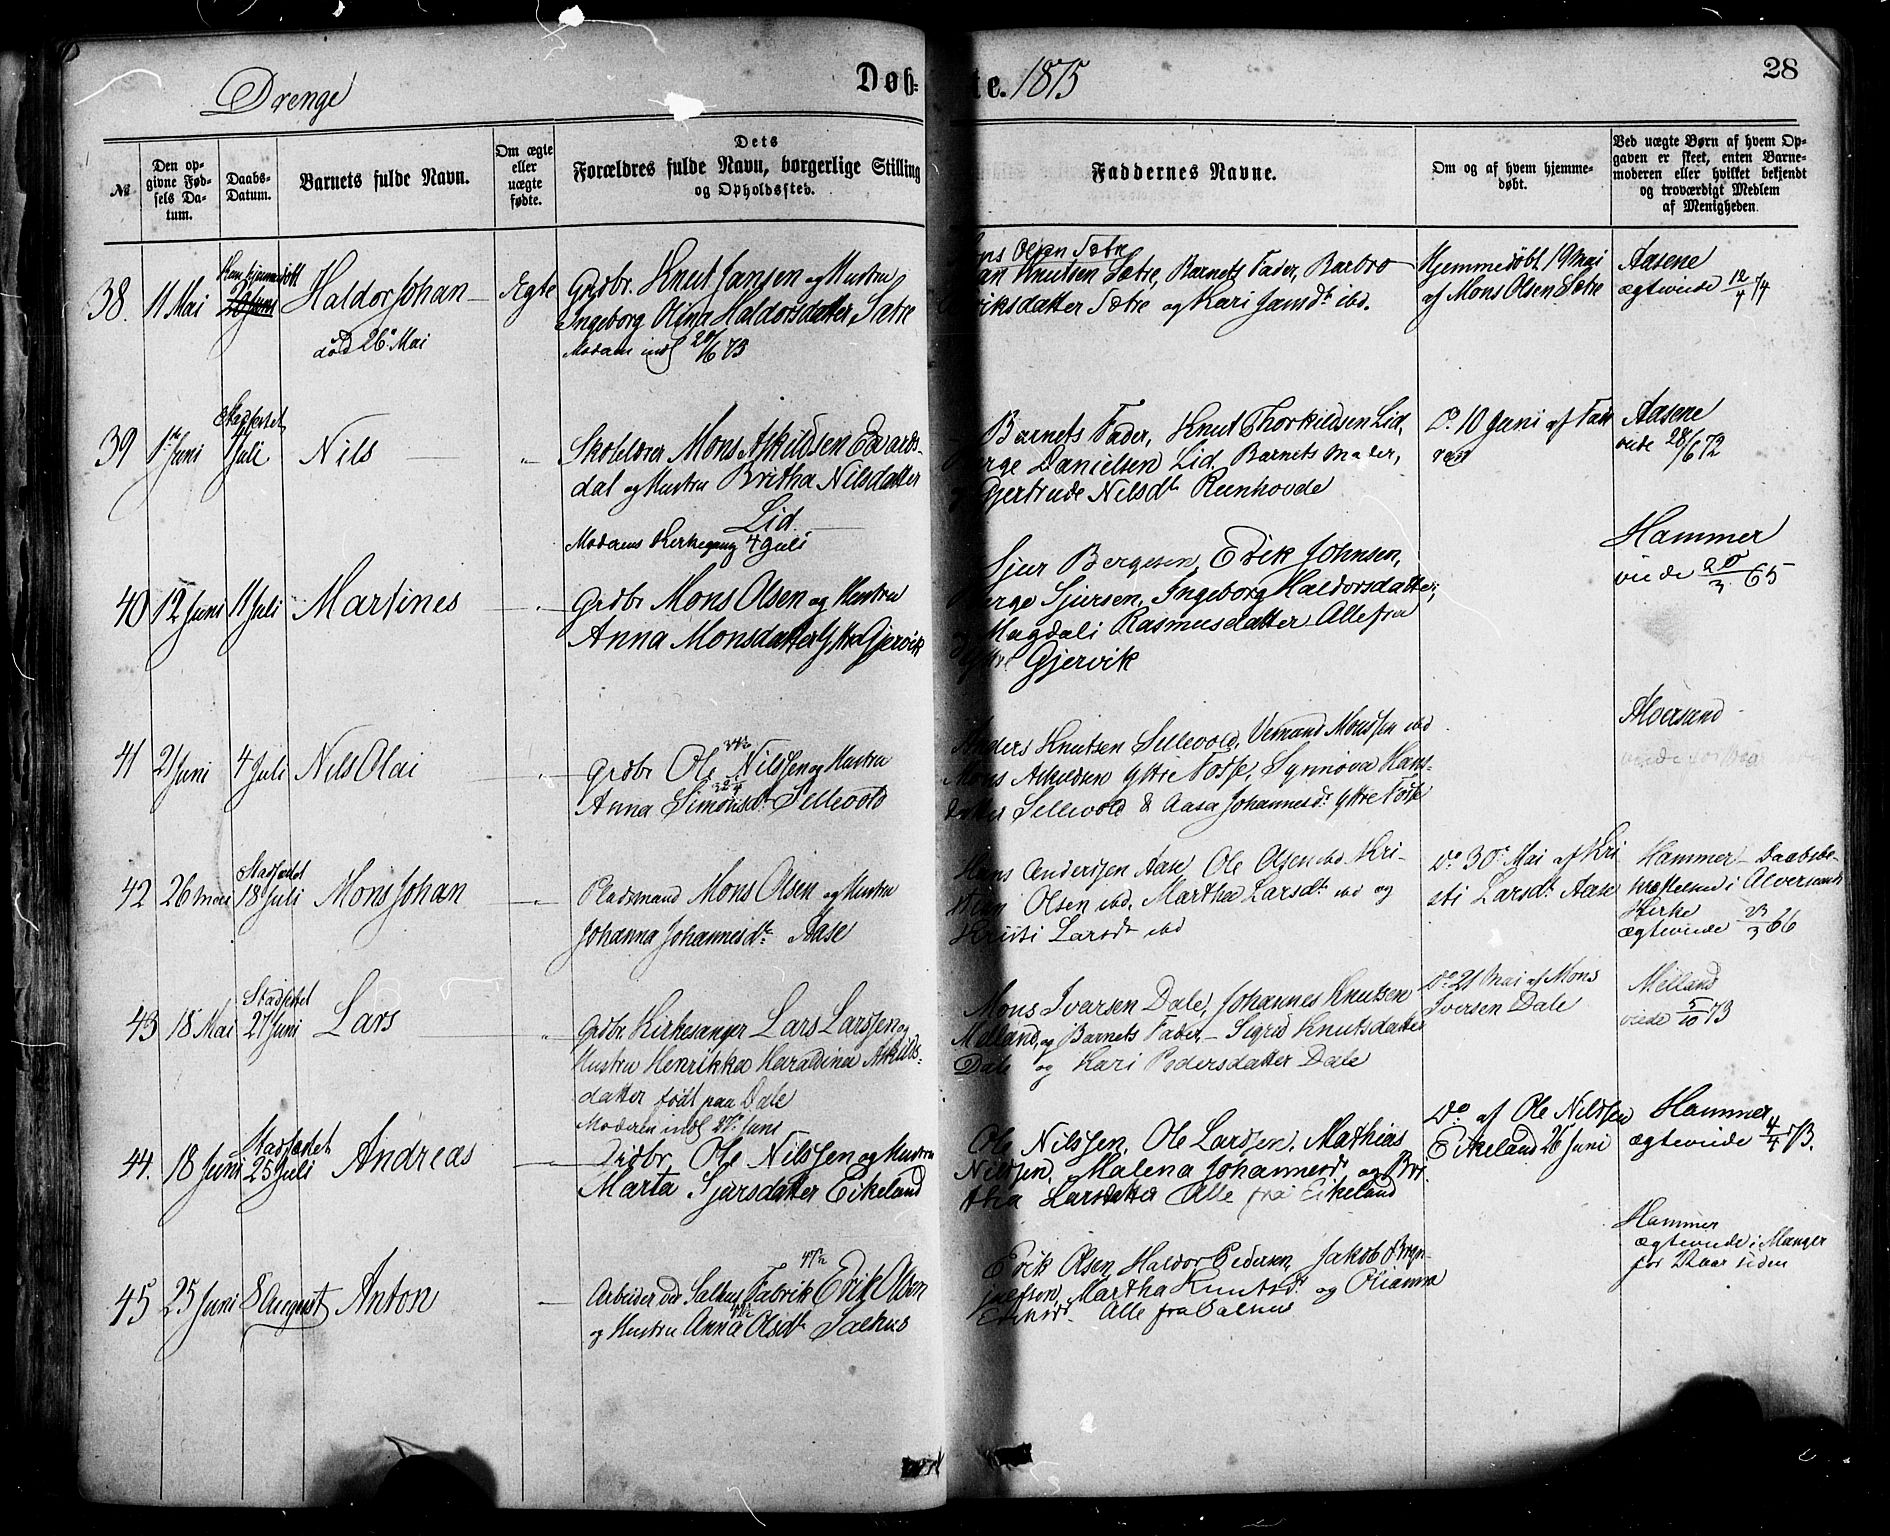 Drenge
Døb-te. 1875
28
№
Den opgivne Fødsels Datum.
Daabs-Datum.
Barnets fulde Navn.
Om ægte eller uægte fødte.
Dets
Forældres fulde Navn, borgerlige Stilling
og Opholdssted.
Faddernes Navne.
Om og af hvem hjemmedøbt.
Ved uægte Børn af hvem Opgaven er skeet, enten Barnemoderen eller hvilket bekjendt og troværdigt Medlem af Menigheden.
38.
11 Mai
Kun hjemmedøbt
Haldor Johan
død 26 Mai
Ægte
Grdbr. Knut Jansen og Hustru
Ingeborg Olina Haldorsdatter Sætre
Olsen Sætre
Knutsen Sætre, Barnets Fader, Barbro
riksdatter Sætre og Kari Jansdt ibd.
Hjemmedøbt 19 Mai
af Mons Olsen Sætre
Aasene
ægteviede 12/4 74
39
1ste Juni
Stadfæstet
Juli
Nils
"
Skolelærer Mons Askildsen Evards-
dal og Hustru Britha Nilsdatter
Lid
Moderens Kirkegang 4 Juli
Barnets Fader, Knut Thorkildsen Lid,
Danielsen Lid, Barnets Moder,
Gjertrude Nilsdt Runhovde
Do 10 Juni af Fad
Aasene
viede 28/6 72
40
12 Juni
11 Juli
Martines
"
Grdbr Mons Olsen og Hustru
Anna Monsdatter Ytre Gjervik
Sjur Bergesen, Erik Johnsen,
Sjursen, Ingeborg Haldorsdatter,
Magdali Rasmusdatter Alle fra
Gjervik
Hammer
viede 20/3 65
41
21 Juni
4 Juli
Nils Olai
"
Grdbr Ole Nilssen og Hustru
Anna Simonsdt Sellevold
Anders Knutsen Sellevold, Monssen ibd
Mons Askildsen Ytre Fosse, Synnøva Hans-
datter Sellevold & Aasa Johannesdt Ytre Fosse
Alversund
42
26 Mai
Stadfæstet
18 Juli
Mons Johan
"
Pladsmand Mons Olsen og Hustru
Johanna Johannesdt Aase
Hans Anderssen Aase, Ole Olsen ibd. Kri-
Olsen ibd, Martha Larsdt ibd og
Kristi Larsdt ibd
Do 30te Mai af Kri
sti Larsdt Aase
Hammer - Daabsbe-
kræftelsen i Alversund
Kirke
ægteviede 23/3 66
43
18 Mai
Stadfæstet
27 Juni
Lars
"
Grdbr. Kirkesanger Lars Larssen og
Hustru Henrikka Haraldina Askilds-
datter født paa Dale
Moderen indl 27de Juni
Mons Ivarsen Dale, Johannes Knutsen
Melland, og Barnets Fader, - Sigrid Knutsdatter
Dale og Kari Pedersdatter Dale
Do 21 Mai af Mons
Iversen Dale
Melland
viede 5/10 73
44.
18 Juni
Stadfæstet
25 Juli
Andreas
"
Grdbr. Ole Nilssen og Hustru
Marta Sjursdatter Eikeland
Ole Nilssen, Ole Larssen, Mathias
Nilssen, Malena Johannesdt og Bri
tha Larsdatter Alle fra Eikeland
Do af Ole Nilssen
Eikeland 26 Juni
Hammer
ægteviede 4/4 73.
45
25 Juni
8 August
Anton
Arbeider ved Salhus Fabrik Erik Olsen
og Hustru Anna Olsdt Salhus
Erik Olsen, Haldor Pedersen, Jakob Bryn-
julfson, Martha Knutsdt og Olianna
Alle fra Salhus
Hammer
ægteviede i Manger
for 2 Aar siden